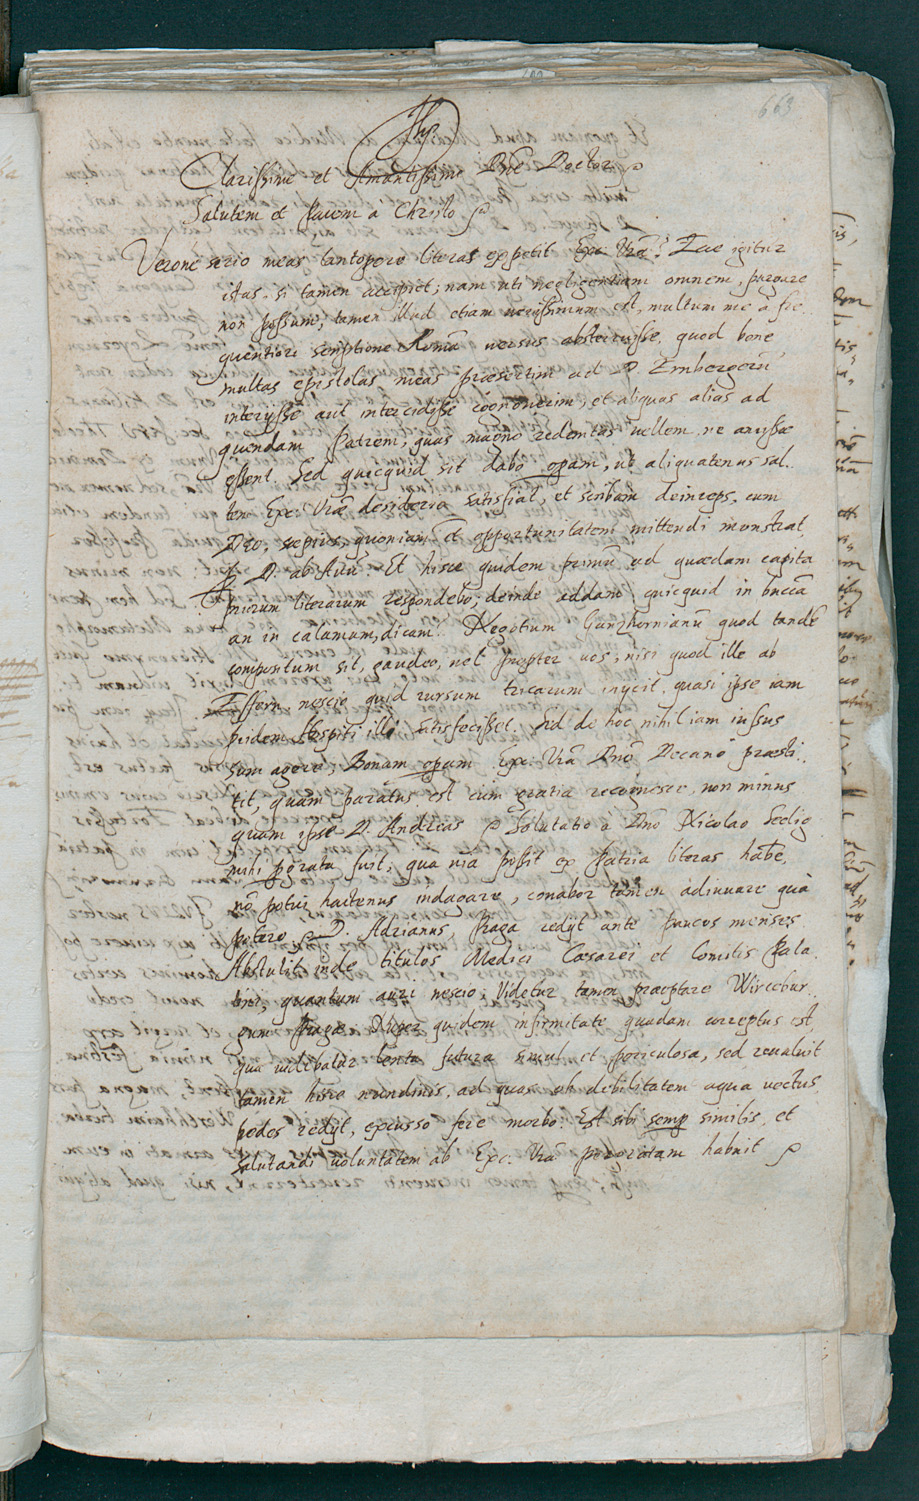 663
Clarissime et Amantissime Dne Doctor
Salutem et pacem a Christo
Veroné serio meas tantopere literas expetit Exc. Vra? Ecce igitur
istas, si tamen accipiet; nam uti negligentiam omnem, purgare
non possum, tamen illud etiam verissimum est, multum me à fre
quentiori scriptione Romã versus absterruisse, quod bene
multas epistolas meas præsertim ad D. Embergerũ
interijsse aut intercidisse cognoverim, et aliquas alias ad
quendam Patrem, quas magno redemtas vellem ne amissæ
essent. Sed quicquid sit dabo opam, ut aliquatenus sal
tem Exc. Vræ desideria satisfiat, et scribam deinceps, cum
Deo, sæpius, quoniam et opportunitatem mittendi monstrat
D. ab Auũ. Et hisce quidem primũ ad quædam capita
priorum literarum respondebo; deinde addam, quicquid in buccã
an in calamum, dicam. Negotium Gunzhornianũ quod tandẽ
compositum sit, gaudeo, vel propter vos; nisi quod ille ab
Effern nescio quid rursum tricarum injicit, quasi ipse iam
pridem Hospiti illi satisfecisset. Sed de hoc nihil iam iussus
sum agere; Bonam opam Exc. Vra Dno Decano præsti
tit, quam paratus est cum gratia recognoscere, non minus
quam ipse D. Andreas Salutatio a Dno Nicolao Seelig
mihi porata fuit; qua via possit ex Patria literas habẽ,
nõ potui hactenus indagare, conabor tamen adiuvare quà
potero D. Adrianus, Praga redijt ante paucos menses
Abstulit inde titulos Medici Cæsarei et Comitis Pala
tini, quantum auri nescio; Videtur tamen præoptare Wircebur
gum Pragæ. Nuper quidem infirmitate quadam correptus est,
qua videbatur lenta futura simul et periculosa, sed revaluit
tamen hisce nundinis, ad quas ob debilitatem aqua vectus
pedes redijt, excusso fere morbo. Est sibi semp similis, et
salutandi voluntatem ab Exc. Vra pergratam habuit